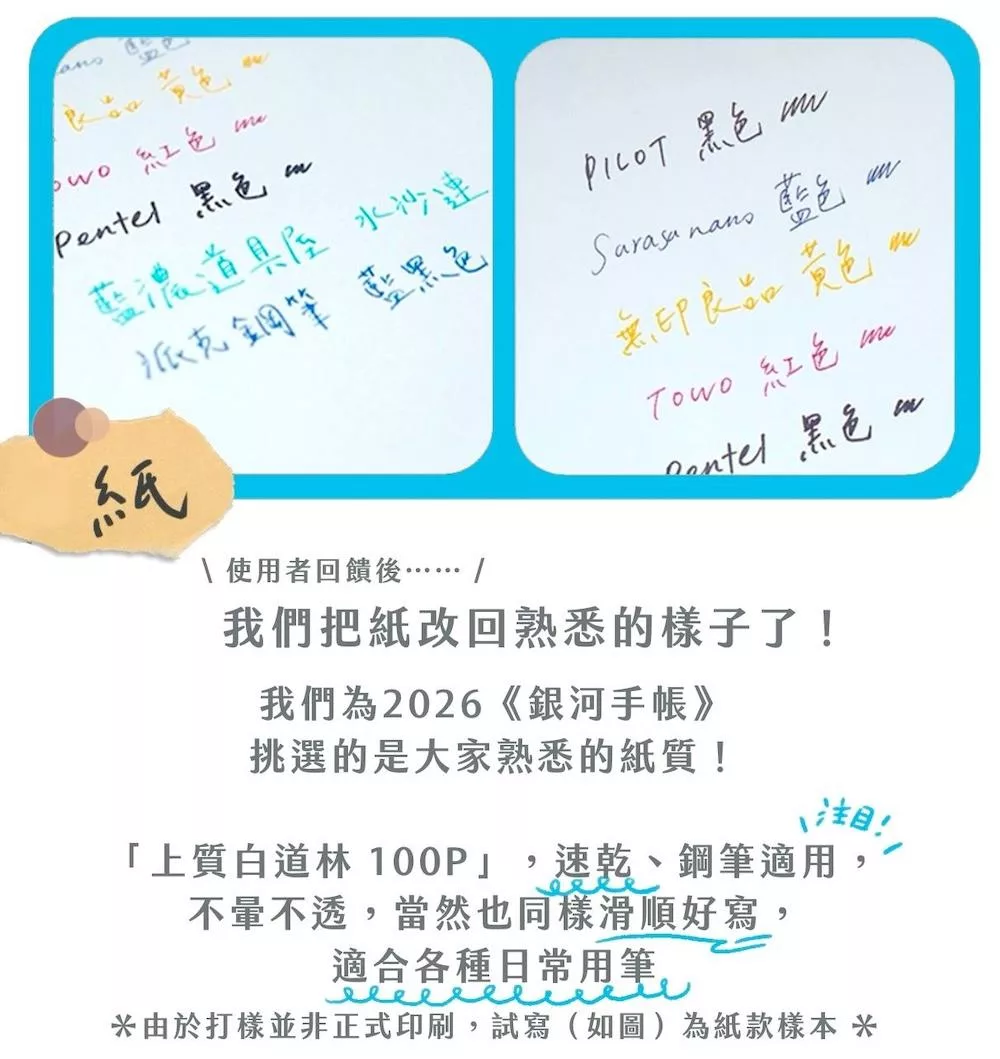 藍色
良品 黃色
owo 紅色
Pentel 黑色
藍濃道具屋 水沙連
派克鋼筆 藍黑色
PILOT 黑色
Sarasa nano 藍色
無印良品 黃色
TOWO 紅色
Pentel 黑色
紙
\ 使用者回饋後⋯⋯ /
我們把紙改回熟悉的樣子了！
我們為2026《銀河手帳》
挑選的是大家熟悉的紙質！
注目!
「上質白道林 100P」，速乾、鋼筆適用，
不暈不透，當然也同樣滑順好寫，
適合各種日常用筆
＊由於打樣並非正式印刷，試寫（如圖）為紙款樣本 ＊